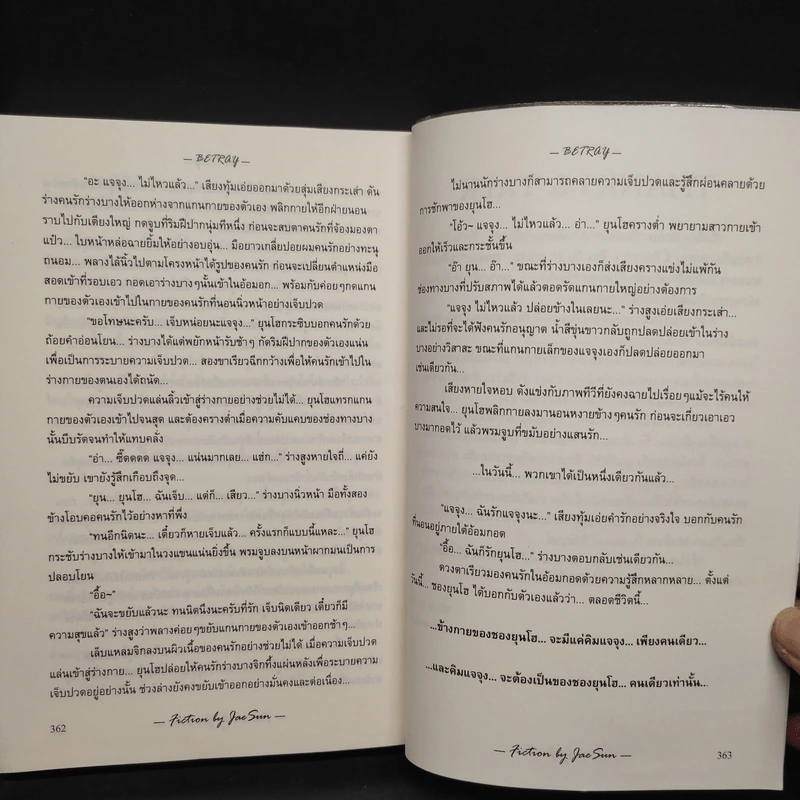 — BETRAY —
"อะ แจจุง... ไม่ไหวแล้ว..." เสียงทุ้มเอ่ยออกมาด้วยสุ่มเสียงกระเส่า ดัน
ร่างคนรักร่างบางให้ออกห่างจากแกนกายของตัวเอง พลิกกายให้อีกฝ่ายนอน
ราบไปกับเตียงใหญ่ กดจูบที่ริมฝีปากนุ่มทีหนึ่ง ก่อนจะสบตาคนรักที่จ้องมองตา
แป๋ว... ใบหน้าหล่อฉายยิ้มให้อย่างอบอุ่น... มือยาวเกลี่ยปอยผมคนรักอย่างทะนุ
ถนอม... พลางไล้นิ้วไปตามโครงหน้าได้รูปของคนรัก ก่อนจะเปลี่ยนตำแหน่งมือ
สอดเข้าที่รอบเอว กอดเอาร่างบางๆนั้นเข้าในอ้อมอก... พร้อมกับค่อยๆกดแกน
กายของตัวเองเข้าไปในกายของคนรักที่นอนนิ่วหน้าอย่างเจ็บปวด
"ขอโทษนะครับ... เจ็บหน่อยนะแจจุง..." ยุนโฮกระซิบบอกคนรักด้วย
ถ้อยคำอ่อนโยน... ร่างบางได้แต่พยักหน้ารับช้าๆ กัดริมฝีปากของตัวเองแน่น
เพื่อเป็นการระบายความเจ็บปวด... สองขาเรียวฉีกกว้างเพื่อให้คนรักเข้าไปใน
ร่างกายของตนเองได้ถนัด...
ความเจ็บปวดแล่นลิ่วเข้าสู่ร่างกายอย่างช่วยไม่ได้... ยุนโฮแทรกแกน
กายของตัวเองเข้าไปจนสุด และต้องครางต่ำเมื่อความคับแคบของช่องทางบาง
นั้นบีบรัดจนทำให้แทบคลั่ง
"อ่า... ซี๊ดดดด แจจุง... แน่นมากเลย... แฮ่ก..." ร่างสูงหายใจถี่... แค่ยัง
ไม่ขยับ เขายังรู้สึกเกือบถึงจุด...
"ยุน... ยุนโฮ... ฉันเจ็บ... แต่ก็... เสียว..." ร่างบางนิ่วหน้า มือทั้งสอง
ข้างโอบคอคนรักไว้อย่างหาที่พึ่ง
"ทนอีกนิดนะ... เดี๋ยวก็หายเจ็บแล้ว... ครั้งแรกก็แบบนี้แหละ..." ยุนโฮ
กระชับร่างบางให้เข้ามาในวงแขนแน่นยิ่งขึ้น พรมจูบลงบนหน้าผากมนเป็นการ
ปลอบโยน
"อื้อ~"
"ฉันจะขยับแล้วนะ ทนนิดนึงนะครับที่รัก เจ็บนิดเดียว เดี๋ยวก็มี
ความสุขแล้ว" ร่างสูงว่าพลางค่อยๆขยับแกนกายของตัวเองเข้าออกช้าๆ...
เล็บแหลมจิกลงบนผิวเนื้อของคนรักอย่างช่วยไม่ได้ เมื่อความเจ็บปวด
แล่นเข้าสู่ร่างกาย... ยุนโฮปล่อยให้คนรักร่างบางจิกทึ้งแผ่นหลังเพื่อระบายความ
เจ็บปวดอยู่อย่างนั้น ช่วงล่างยังคงขยับเข้าออกอย่างมั่นคงและต่อเนื่อง...
362
— Fiction by JaeSun —
— BETRAY —
ไม่นานนักร่างบางก็สามารถคลายความเจ็บปวดและรู้สึกผ่อนคลายด้วย
การชักพาของยุนโฮ...
"โอ้ว~ แจจุง... ไม่ไหวแล้ว... อ่า..." ยุนโฮครางต่ำ พยายามสาวกายเข้า
ออกให้เร็วและกระชั้นขึ้น
"อ๊า ยุน... อ๊า..." ขณะที่ร่างบางเองก็ส่งเสียงครางแข่งไม่แพ้กัน
ช่องทางบางที่ปรับสภาพได้แล้วตอดรัดแกนกายใหญ่อย่างต้องการ
"แจจุง ไม่ไหวแล้ว ปล่อยข้างในเลยนะ..." ร่างสูงเอ่ยเสียงกระเส่า...
และไม่รอที่จะได้ฟังคนรักอนุญาต น้ำสีขุ่นขาวกลับถูกปลดปล่อยเข้าในร่าง
บางอย่างวิสาสะ ขณะที่แกนกายเล็กของแจจุงเองก็ปลดปล่อยออกมา
เช่นเดียวกัน...
เสียงหายใจหอบ ดังแข่งกับภาพทีวีที่ยังคงฉายไปเรื่อยๆแม้จะไร้คนให้
ความสนใจ... ยุนโฮพลิกกายลงมานอนหงายข้างๆคนรัก ก่อนจะเกี่ยวเอาเอว
บางมากอดไว้ แล้วพรมจูบที่ขมับอย่างแสนรัก...
...ในวันนี้... พวกเขาได้เป็นหนึ่งเดียวกันแล้ว...
"แจจุง... ฉันรักแจจุงนะ..." เสียงทุ้มเอ่ยคำรักอย่างจริงใจ บอกกับคนรัก
ที่นอนอยู่ภายใต้อ้อมกอด
"อื้อ... ฉันก็รักยุนโฮ..." ร่างบางตอบกลับเช่นเดียวกัน...
ดวงตาเรียวมองคนรักในอ้อมกอดด้วยความรู้สึกหลากหลาย... ตั้งแต่
วันนี้... ชองยุนโฮ ได้บอกกับตัวเองแล้วว่า... ตลอดชีวิตนี้...
...ข้างกายของชองยุนโฮ... จะมีแค่คิมแจจุง... เพียงคนเดียว...
...และคิมแจจุง... จะต้องเป็นของชองยุนโฮ... คนเดียวเท่านั้น...
— Fiction by JaeSun —
363